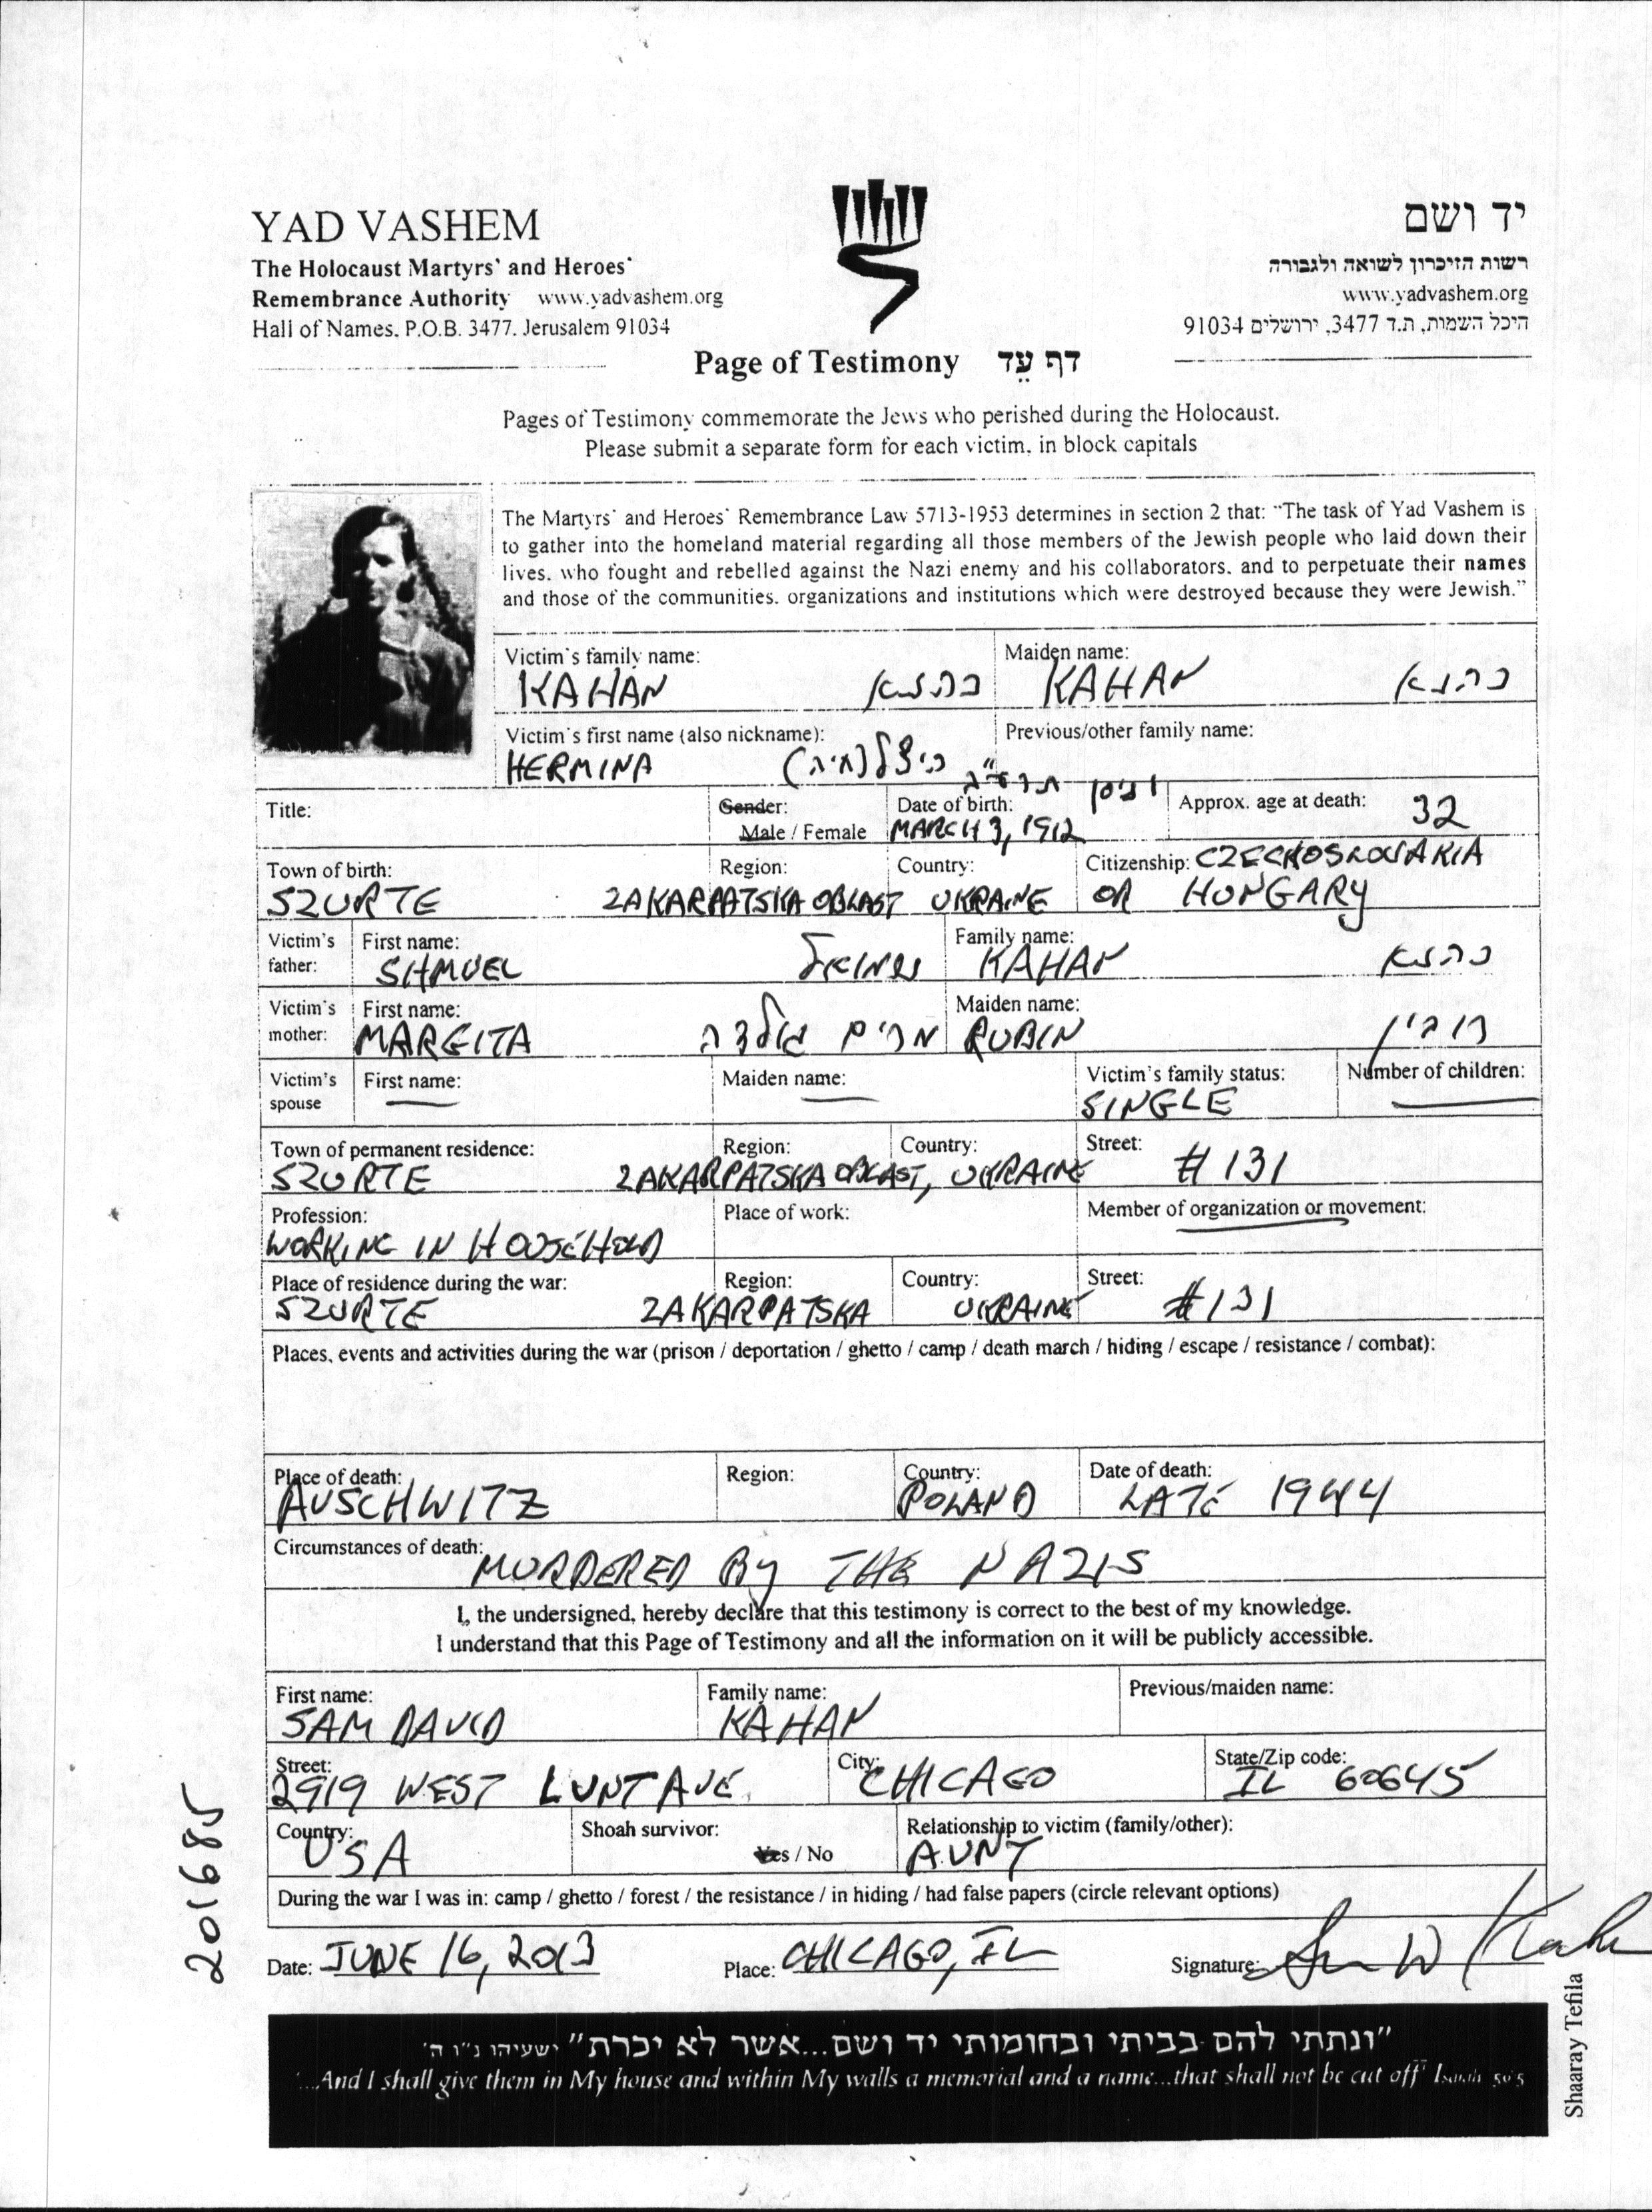 YAD VASHEM
The Holocaust Martyrs' and Heroes'
Remembrance Authority www.yadvashem.org
Hall of Names, P.O.B. 3477, Jerusalem 91034
יד ושם
רשות הזיכרון לשואה ולגבורה
www.yadvashem.org
היכל השמות, ת.ד 3477, ירושלים 91034
Page of Testimony דף עֵד
Pages of Testimony commemorate the Jews who perished during the Holocaust.
Please submit a separate form for each victim, in block capitals
The Martyrs' and Heroes' Remembrance Law 5713-1953 determines in section 2 that: "The task of Yad Vashem is
to gather into the homeland material regarding all those members of the Jewish people who laid down their
lives, who fought and rebelled against the Nazi enemy and his collaborators, and to perpetuate their names
and those of the communities, organizations and institutions which were destroyed because they were Jewish."
Victim's family name: Maiden name:
KAHAN כהנא KAHAN כהנא
Victim's first name (also nickname): Previous/other family name:
HERMINA
Title: Gender: Male / Female Date of birth: MARCH 3, 1912 Approx. age at death: 32
Town of birth: Region: Country: Citizenship: CZECHOSLOVAKIA
SZURTE ZAKARPATSKA OBLAST UKRAINE OR HUNGARY
Victim's father: First name: Family name:
SHMUEL שמואל KAHAN כהנא
Victim's mother: First name: Maiden name:
MARGITA מרים גאלדה RUBIN רובין
Victim's spouse First name: Maiden name: Victim's family status: Number of children:
SINGLE
Town of permanent residence: Region: Country: Street:
SZURTE ZAKARPATSKA OBLAST, UKRAINE # 131
Profession: Place of work: Member of organization or movement:
WORKING IN HOUSEHOLD
Place of residence during the war: Region: Country: Street:
SZURTE ZAKARPATSKA UKRAINE #131
Places, events and activities during the war (prison / deportation / ghetto / camp / death march / hiding / escape / resistance / combat):
Place of death: Region: Country: Date of death:
AUSCHWITZ POLAND LATE 1944
Circumstances of death: MURDERED BY THE NAZIS
I, the undersigned, hereby declare that this testimony is correct to the best of my knowledge.
I understand that this Page of Testimony and all the information on it will be publicly accessible.
First name: Family name: Previous/maiden name:
SAM DAVID KAHAN
Street: City: State/Zip code:
2919 WEST LUNT AVE. CHICAGO IL 60645
Country: Shoah survivor: Relationship to victim (family/other):
USA Yes / No AUNT
During the war I was in: camp / ghetto / forest / the resistance / in hiding / had false papers (circle relevant options)
Date: JUNE 16, 2013 Place: CHICAGO, IL Signature:
"ונתתי להם בביתי ובחומותי יד ושם...אשר לא יכרת" ישעיהו נ"ו ה'
"...And I shall give them in My house and within My walls a memorial and a name...that shall not be cut off" Isaiah 56:5
201685
Shaaray Tefila